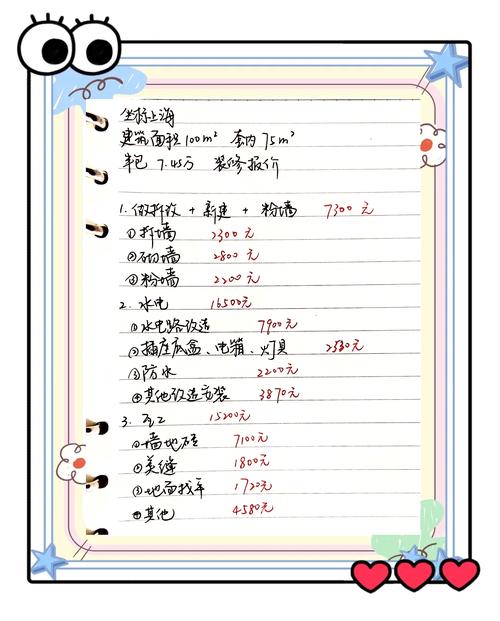 坐标上海
建筑面积100m² 套内75m²
半包 7.45万 装修报价
1. 做拆改 + 新建 + 粉墙 7300元
①拆墙 2300元
②砌墙 2800元
③粉墙 2200元
2. 水电 16500元
①水电路改造 7900元
②插座底盒、电箱、灯具 2530元
③防水 2200元
④其他改造安装 3870元
3. 瓦工 15200元
①墙地砖 7100元
②美缝 1800元
③地面找平 1720元
④其他 4580元